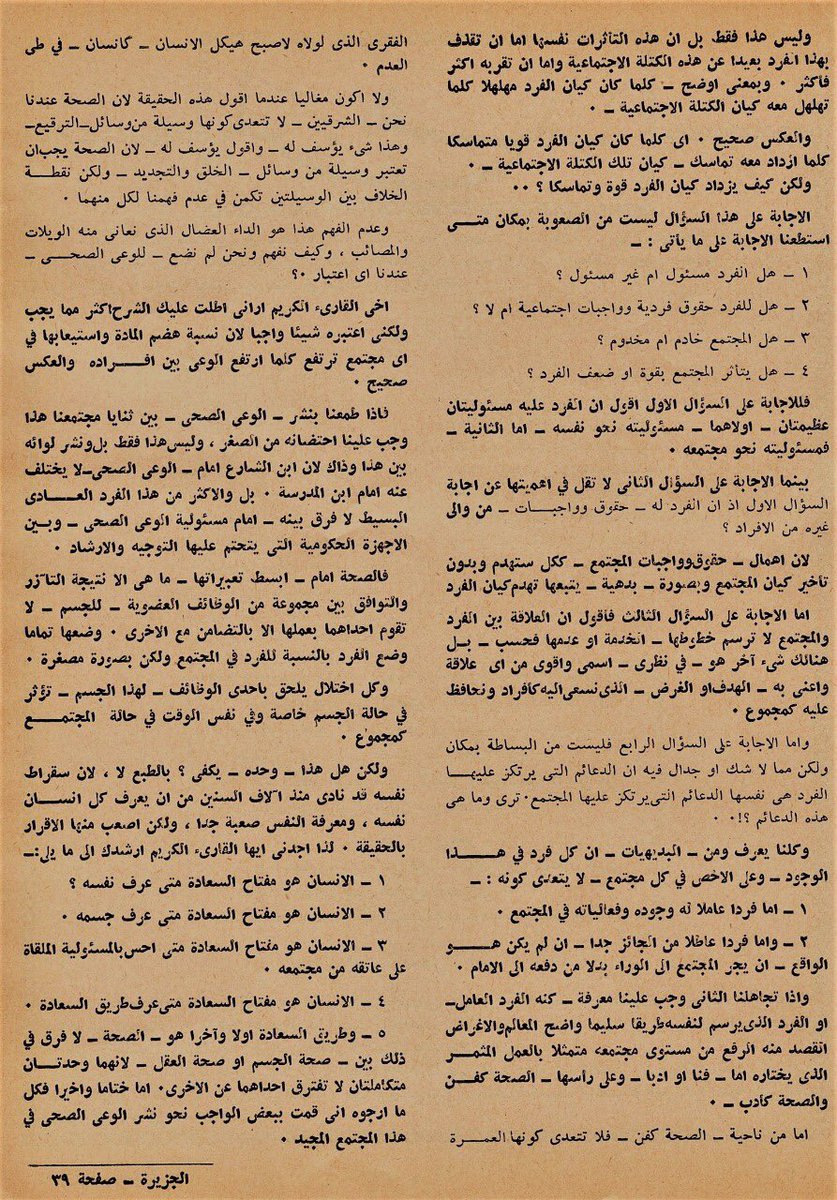 وليس هذا فقط بل ان هذه التأثرات نفسها اما ان تقذف
بهذا الفرد بعيدا عن هذه الكتلة الاجتماعية واما ان تقربه اكثر
فأكثر ٠ وبمعنى اوضح ــ كلما كان كيان الفرد مهلهلا كلما
تهلهل معه كيان الكتلة الاجتماعية ــ ٠
والعكس صحيح ٠ اى كلما كان كيان الفرد قويا متماسكا
كلما ازداد معه تماسك ــ كيان تلك الكتلة الاجتماعية ــ ٠
ولكن كيف يزداد كيان الفرد قوة وتماسكا ؟ ٠٠
الاجابة على هذا السؤال ليست من الصعوبة بمكان متـــى
استطعنا الاجابة على ما يأتى : ــ
١ ــ هل الفرد مسئول ام غير مسئول ؟
٢ ــ هل للفرد حقوق فردية وواجبات اجتماعية ام لا ؟
٣ ــ هل المجتمع خادم ام مخدوم ؟
٤ ــ هل يتأثر المجتمع بقوة او ضعف الفرد ؟
فللاجابة على السؤال الاول اقول ان الفرد عليه مسئوليتان
عظيمتان ــ اولاهما ــ مسئوليته نحو نفسه ــ اما الثانية ــ
فمسئوليته نحو مجتمعه ٠
بينما الاجابة على السؤال الثانى لا تقل في اهميتها عن اجابة
السؤال الاول اذ ان الفرد له ــ حقوق وواجبـــات ــ من والى
غيره من الافراد ؟
لان اهمال ــ حقوق وواجبات المجتمع ــ ككل ستهدم وبدون
تأخير كيان المجتمع وبصورة ــ بدهية ــ يتبعها تهدم كيان الفرد
اما الاجابة على السؤال الثالث فأقول ان العلاقة بين الفرد
والمجتمع لا ترسم خطوطها ــ الخدمة او عدمها فحسب ــ بـــل
هنالك شىء آخر هو ــ في نظرى ــ اسمى واقوى من اى علاقة
واعنى به ــ الهدف او الغرض ــ الذى نسعى اليه كأفراد ونحافظ
عليه كمجموع ٠
واما الاجابة على السؤال الرابع فليست من البساطة بمكان
ولكن مما لا شك او جدال فيه ان الدعائم التى يرتكز عليهـــا
الفرد هى نفسها الدعائم التى يرتكز عليها المجتمع ٠ ترى وما هى
هذه الدعائم ؟! ٠٠
وكلنا يعرف ومن ــ البديهيات ــ ان كل فرد في هـــــذا
الوجود ــ وعلى الاخص في كل مجتمع ــ لا يتعدى كونه : ــ
١ ــ اما فردا عاملا له وجوده وفعالياته في المجتمع ٠
٢ ــ واما فردا عاطلا من الجائز جدا ــ ان لم يكن هـــو
الواقع ــ ان يجر المجتمع الى الوراء بدلا من دفعه الى الامام ٠
واذا تجاهلنا الثانى وجب علينا معرفة ــ كنه الفرد العامل ــ
او الفرد الذى يرسم لنفسه طريقا سليما واضح المعالم والاغراض
انقصد منه الرفع من مستوى مجتمعه متمثلا بالعمل المثمر
الذى يختاره اما ــ فنا او ادبا ــ وعلى رأسها ــ الصحة كفــن
والصحة كأدب ــ ٠
اما من ناحية ــ الصحة كفن ــ فلا تتعدى كونها العمـرة
الفقرى الذى لولاه لاصبح هيكل الانسان ــ كانسان ــ في طى
العدم ٠
ولا اكون مغاليا عندما اقول هذه الحقيقة لان الصحة عندنا
نحن ــ الشرقيين ــ لا تتعدى كونها وسيلة من وسائل ــ الترقيع ــ
وهذا شىء يؤسف له ــ واقول يؤسف له ــ لان الصحة يجب ان
تعتبر وسيلة من وسائل ــ الخلق والتجديد ــ ولكن نقطـــة
الخلاف بين الوسيلتين تكمن في عدم فهمنا لكل منهما ٠
وعدم الفهم هذا هو الداء العضال الذى نعانى منه الويلات
والمصائب ، وكيف نفهم ونحن لم نضع ــ للوعى الصحـــى ــ
عندنا اى اعتبار ؟٠
اخى القارىء الكريم ارانى اطلت عليك الشرح اكثر مما يجب
ولكنى اعتبره شيئا واجبا لان نسبة هضم المادة واستيعابها في
اى مجتمع ترتفع كلما ارتفع الوعى بين افـــراده والعكس
صحيح ٠
فاذا طمعنا بنشر ــ الوعى الصحى ــ بين ثنايا مجتمعنا هذا
وجب علينا احتضانه من الصغر ، وليس هذا فقط بل ونشر لوائه
بين هذا وذاك لان ابن الشارع امام ــ الوعى الصحى ــ لا يختلف
عنه امام ابن المدرسة ٠ بل والاكثر من هذا الفرد العـــادى
البسيط لا فرق بينه ــ امام مسئولية الوعى الصحى ــ وبــين
الاجهزة الحكومية التى يتحتم عليها التوجيه والارشاد ٠
فالصحة امام ــ ابسط تعبيراتها ــ ما هى الا نتيجة التآزر
والتوافق بين مجموعة من الوظائف العضوية ــ للجسم ــ لا
تقوم احداهما بعملها الا بالتضامن مع الاخرى ٠ وضعها تماما
وضع الفرد بالنسبة للفرد في المجتمع ولكن بصورة مصغرة ٠
وكل اختلال يلحق باحدى الوظائف ــ لهذا الجسم ــ تؤثر
في حالة الجسم خاصة وفي نفس الوقت في حالة المجتمـــع
كمجموع ٠
ولكن هل هذا ــ وحده ــ يكفى ؟ بالطبع لا ، لان سقراط
نفسه قد نادى منذ آلاف السنين من ان يعرف كل انســـان
نفسه ، ومعرفة النفس صعبة جدا ، ولكن اصعب منها الاقرار
بالحقيقة ٠ لذا اجدنى ايها القارىء الكريم ارشدك الى ما يلى :ــ
١ ــ الانسان هو مفتاح السعادة متى عرف نفسه ؟
٢ ــ الانسان هو مفتاح السعادة متى عرف جسمه ٠
٣ ــ الانسان هو مفتاح السعادة متى احس بالمسئولية الملقاة
على عاتقه من مجتمعه ٠
٤ ــ الانسان هو مفتاح السعادة متى عرف طريق السعادة ٠
٥ ــ وطريق السعادة اولا وآخرا هو ــ الصحة ــ لا فرق في
ذلك بين ــ صحة الجسم او صحة العقل ــ لانهما وحدتـــان
متكاملتان لا تفترق احداهما عن الاخرى ٠ اما ختاما واخيرا فكل
ما ارجوه انى قمت ببعض الواجب نحو نشر الوعى الصحى في
هذا المجتمع المجيد ٠
الجزيرة ــ صفحة ٣٩